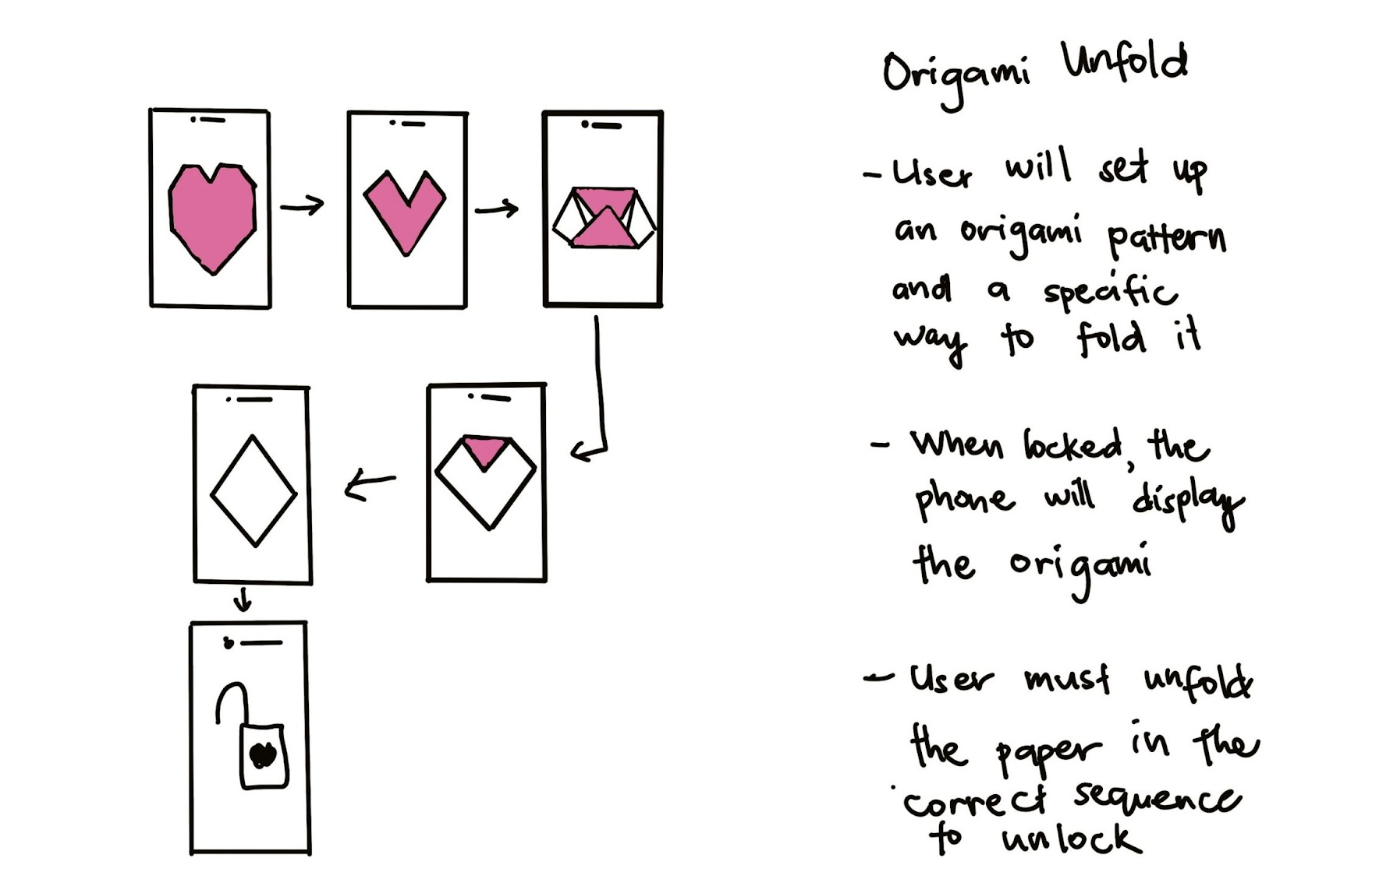 Origami Unfold
- User will set up
an origami pattern
and a specific
way to fold it
- When locked, the
phone will display
the origami
- User must unfold
the paper in the
correct sequence
to unlock